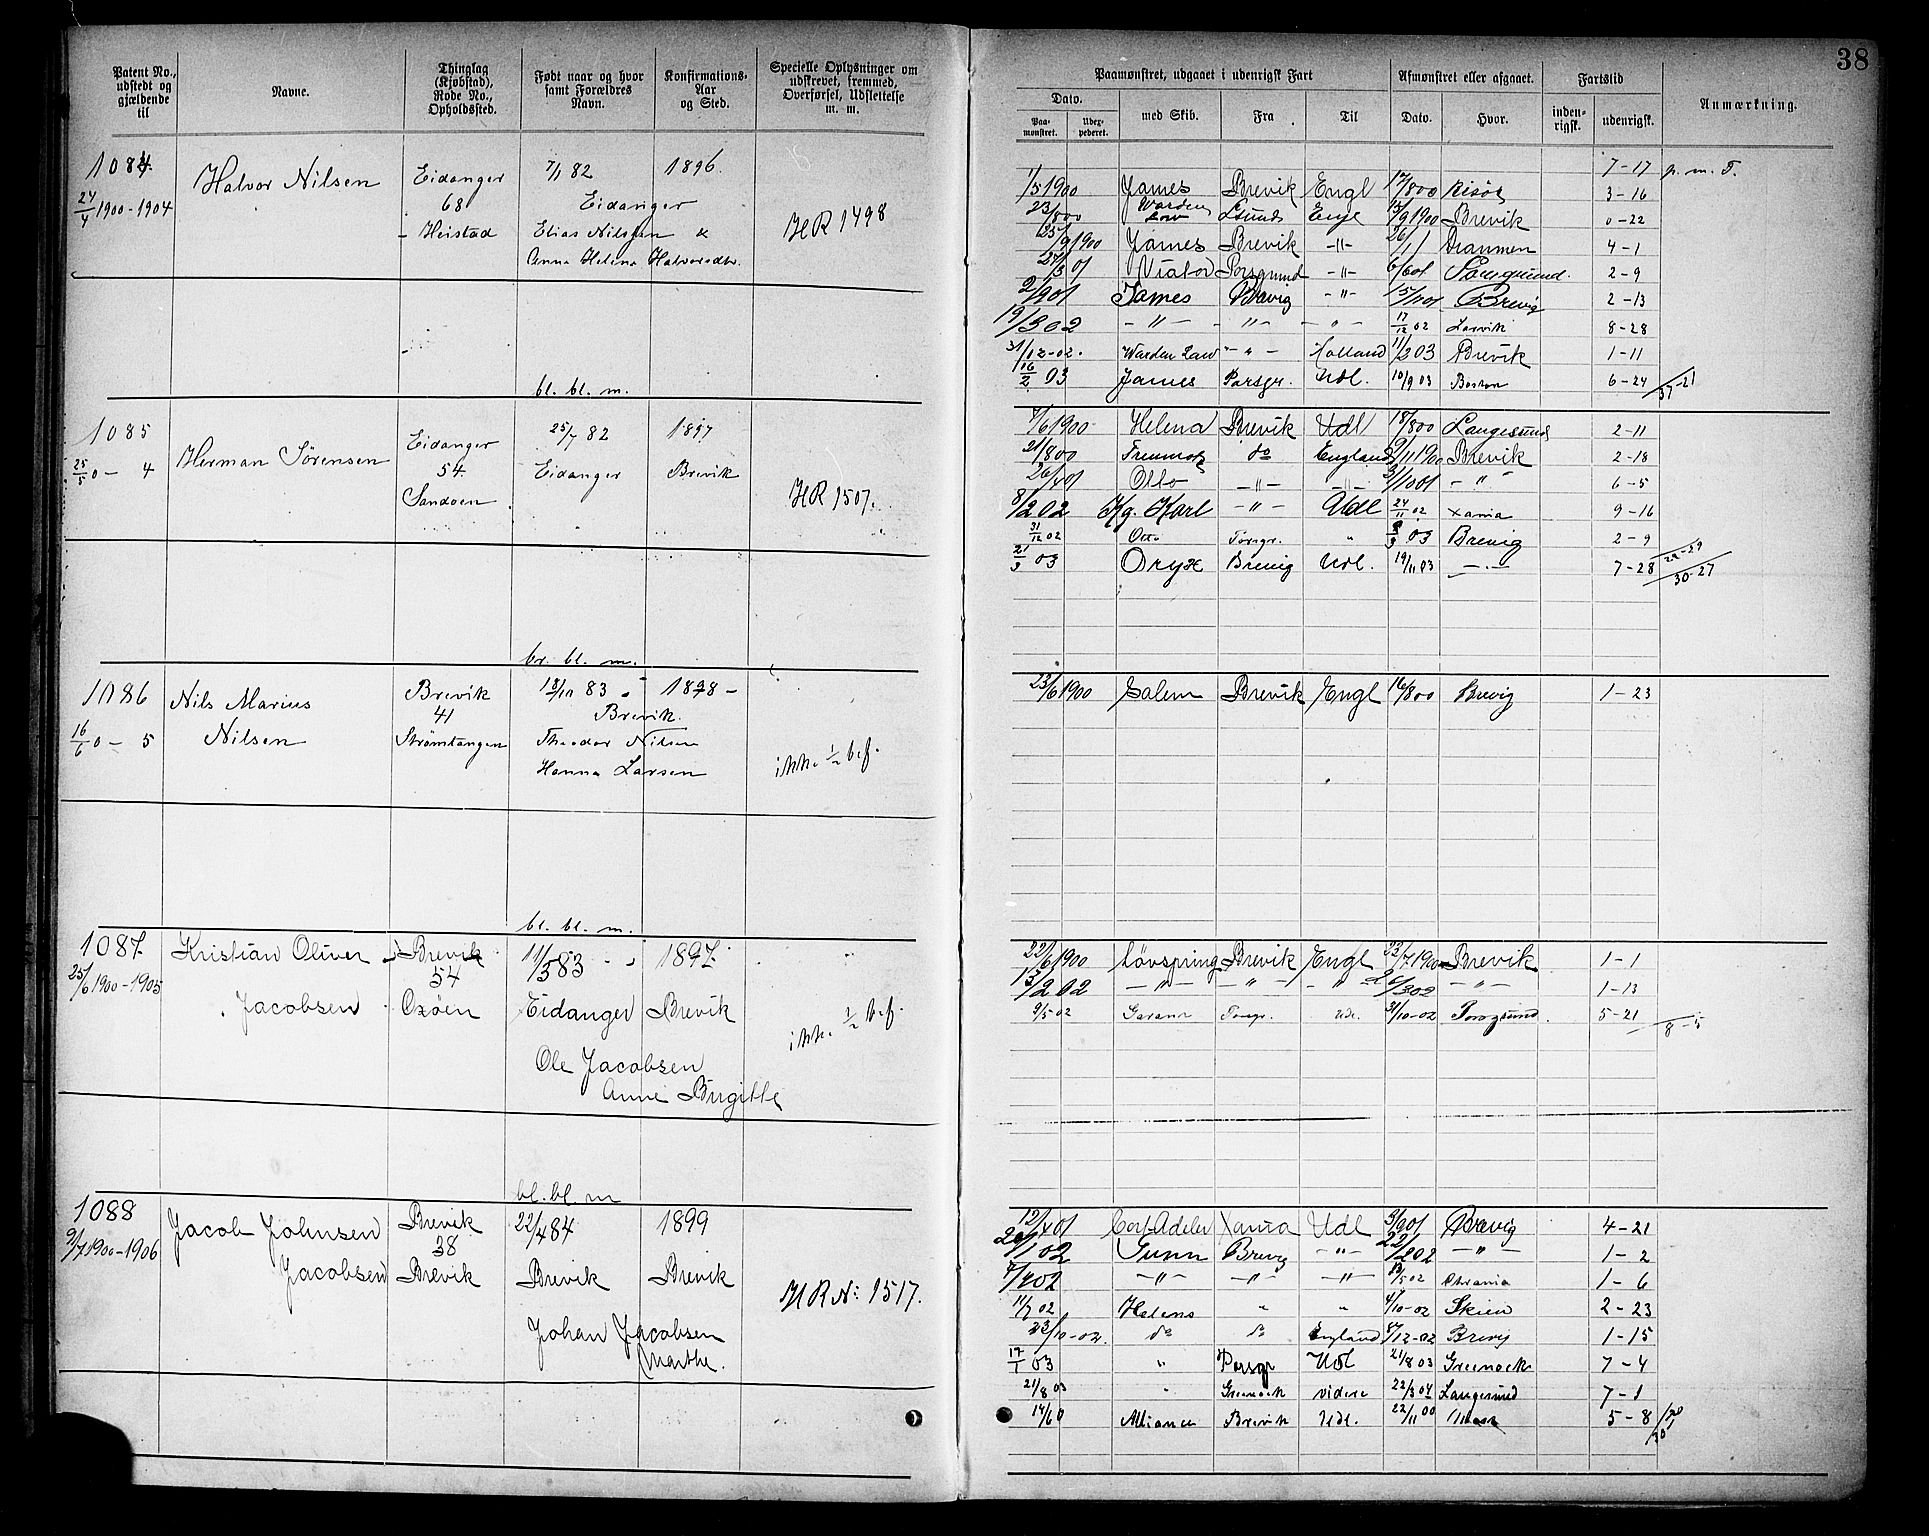 38
Patent No., udstedt og gjældende til
Navne.
Thinglag (Kjøbstad), Rode No., Opholdssted.
Født naar og hvor samt Forældres Navn.
Konfirmations-Aar og Sted.
Specielle Oplysninger om udskrevet, fremmed, Overførsel, Udslettelse m. m.
Paamønstret, udgaaet i udenrigsk Fart
Dato.
Paa-mønstret.
Udex-pederet.
med Skib.
Fra
Til
Afmønstret eller afgaaet.
Dato.
Hvor.
Fartstid
inden-rigsk.
udenrigsk.
Anmærkning.
1084
24/4 1900-1904
Halvor Nilsen
Eidanger
68
Heistad
7/1 82
Eidanger
Elias Nilsen &
Anna Helene Halvorsdtr.
1896.
HR 1498
7-17 p. m. F.
1/5 1900 James Brevik Engl 17/8 00 Risör 3-16
23/8 00 Warden Law Lsund Engl 13/9 1900 Brevik 0-22
25/9 1900 James Brevik -"- 26/1 Drammen 4-1
27/3 01 Viator Porsgrund -"- 6/6 01 Langesund. 2-9
2/9 01 James Brevig -"- 15/11 01 Brevig 2-13
19/3 02 -"- -"- -"- 17/12 02 Larvik 8-28
31/12-02. Warden Law -"- Holland 11/2 03 Brevik 1-11
16/2 03 James Porsgr. Udl. 10/9 03 Boston 6-24 37-21
bl. bl. m.
1085
25/5 0 - 4
Herman Sörensen
Eidanger
54.
Sandøen
25/7 82
Eidanger
1897
Brevik
HR 1507.
7/6 1900 Helena Brevik Udl 18/8 00 Langesund 2-11
21/8 00 do England 9/11 1900 Brevik 2-18
26/4 01 Otto -"- -"- 3/11 01 -"- 6-5
8/2 02 Kg. Karl -"- Udl 24/11 02 Xania 9-16
31/12 02 Otto Porsgr. " 9/3 03 Brevig 2-9
21/3 03 Oryx Brevig Udl. 19/11 03 -"- 7-28 22-29
30-27
br. bl. m.
1086
16/6 0 - 5
Nils Marius
Nilsen
Brevik
41
Strömtangen
18/11 83
Brevik.
Theodor Nilsen
Hanna Larsen
1898 -
ikke 1/2 bef.
23/6 1900 Salem Brevik Engl 16/8 00 Brevig 1-23
bl. bl. m.
1087
25/6 1900-1905
Kristian Oliver
Jacobsen
Brevik
54
Oxöen
11/5 83
Eidanger
Ole Jacobsen
Anne Birgitte
1897
Brevik
ikke 1/2 bef.
22/6 1900 Lövspring Brevik Engl 22/7 1900 Brevik 1-1
13/2 02 -"- -"- -"- 26/3 02 -"- 1-13
9/5 02 Porsgr. Udl. 31/10-02 Porsgrund. 5-21
8-5
bl. bl. m
1088
9/7 1900-1906
Jacob Johnsen
Jacobsen
Brevik
38
Brevik
22/4 84
Brevik
Johan Jacobsen
Marthe.
1899
Brevik
HR No: 1517.
12/4 01 Cort Adeler Xania Udl 3/9 01 Brevig 4-21
20/1 02 Gunn Brevig -"- 22/2 02 -"- 1-2
7/4 02 -"- -"- -"- 13/5 02 Chrania 1-6
11/7 02 Helene " " 4/10-02 Skien 2-23
23/10-02. do do England 8/12-02 Brevig 1-15
17/1 03 " Porsgr Udl 21/8 03 Greenock 7-4
21/8 03 " Greenock videre 22/3 04 Langesund 7-1
14/6 0 Alliance Brevik Udl. 22/11 00 5-8